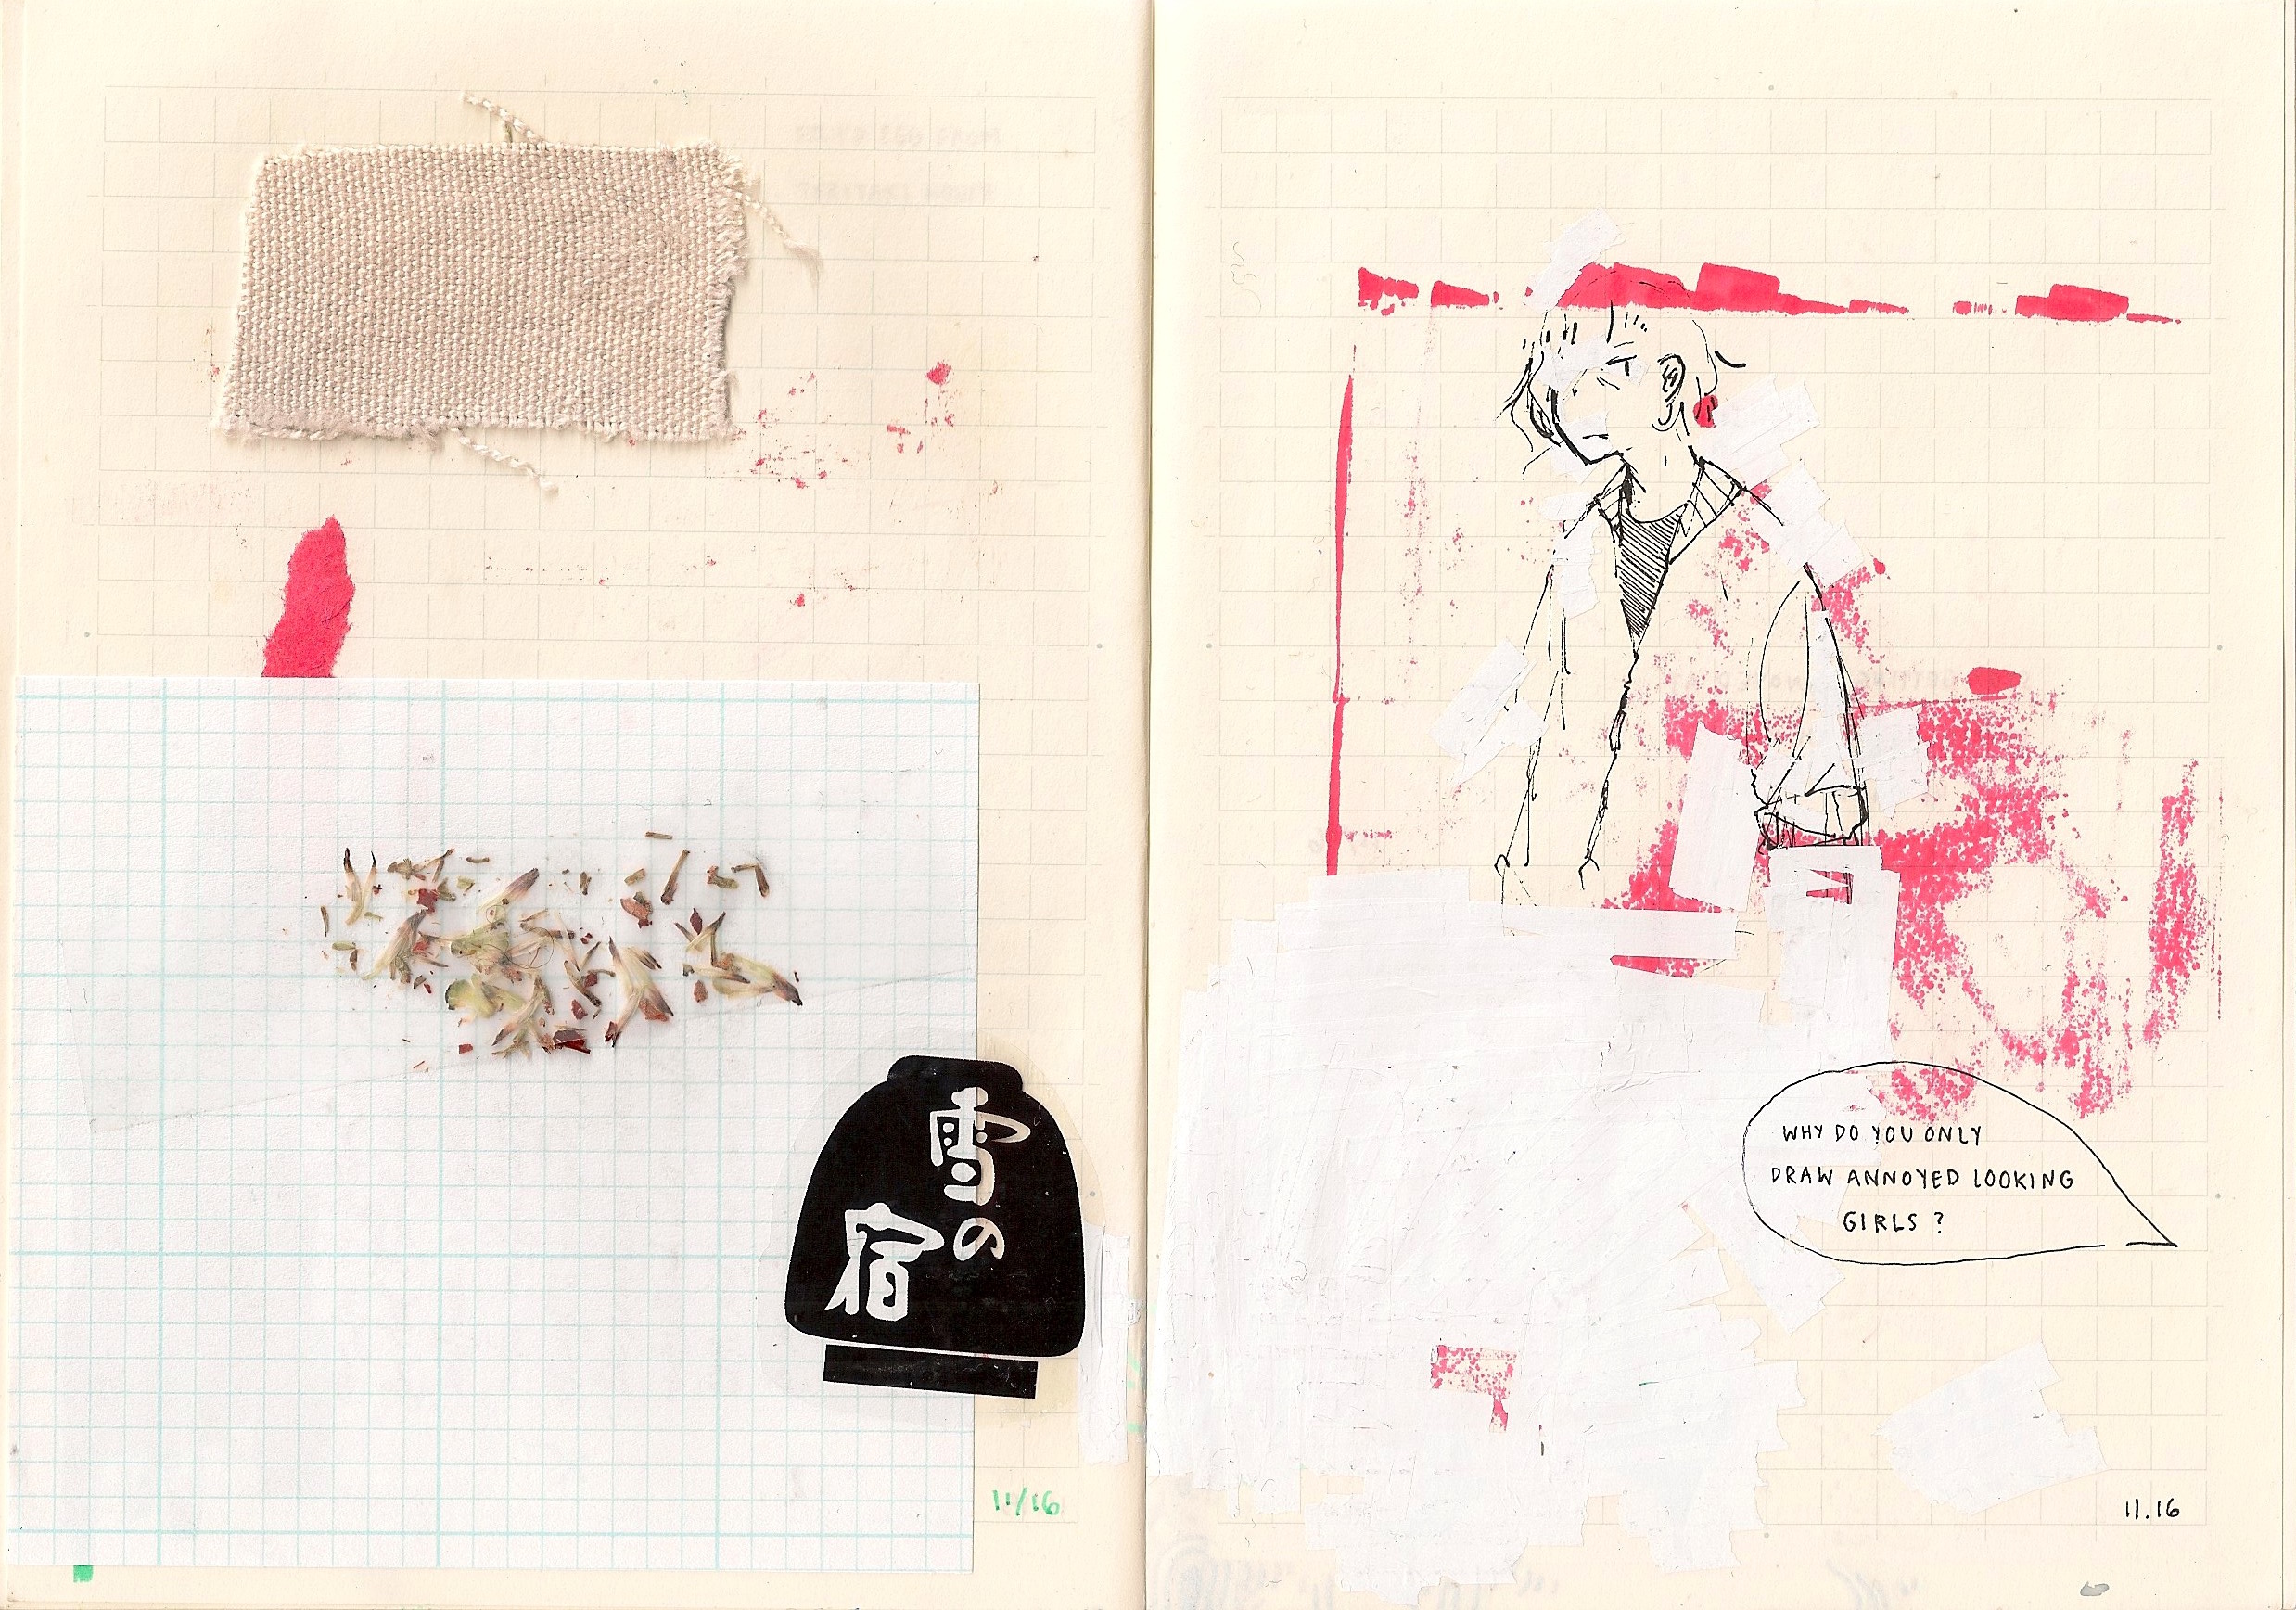 雪の
宿
11/16
WHY DO YOU ONLY
DRAW ANNOYED LOOKING
GIRLS?
11.16